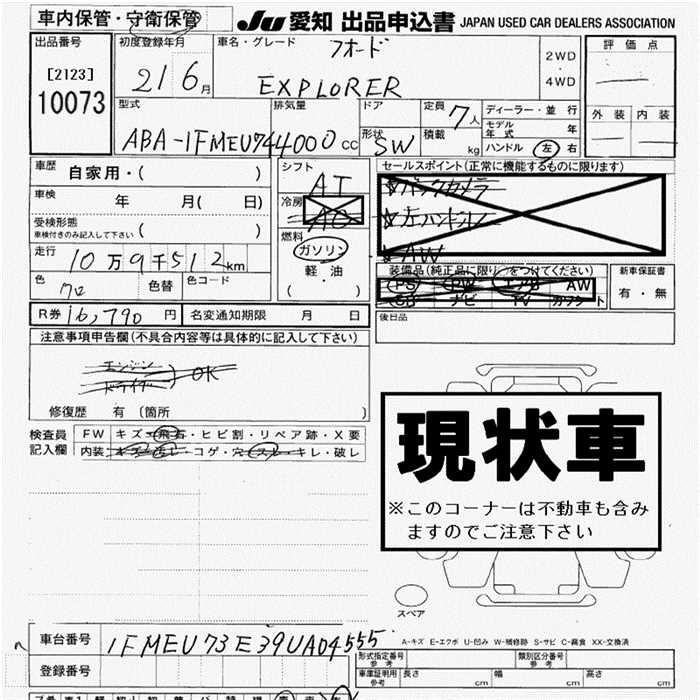 車内保管・守衛保管
JU 愛知 出品申込書 JAPAN USED CAR DEALERS ASSOCIATION
出品番号 初度登録年月 車名・グレード フオード 2WD・4WD 評価点
[2123]
10073
21 6月 EXPLORER
外装 内装
型式 排気量 ドア 定員 7人 ディーラー・並行
ABA-1FMEU74 4000cc 形状 SW 積載 kg
モデル年式 年
ハンドル 左 右
車歴 自家用・( )
シフト AT
セールスポイント(正常に機能するものに限ります)
車検 年 月( 日)
冷房 AC
☆バックカメラ
☆左ハンドル
☆AW
受検形態
車検付きのみ記入して下さい ( )
燃料 ガソリン
軽・油
( )
走行 10万9千512km
装備品(純正品に限り○をつけてください) 新車保証書
色 クロ 色替 色コード
PS PW エアB AW
CD ナビ TV カワシート
有・無
R券 16,790円 名変通知期限 月 日
後日品
注意事項申告欄(不具合内容等は具体的に記入して下さい)
エンジン
ドライブ ) OK
修復歴 有〔箇所 〕
検査員記入欄 FW キズ・飛石・ヒビ割・リペア跡・X要
内装 キズ・汚レ・コゲ・穴・スレ・キレ・破レ
現状車
※このコーナーは不動車も含み
ますのでご注意下さい
スペア
車台番号 1FMEU73E39UA04555
A-キズ E-エクボ U-凹み W-補修跡 S-サビ C-腐食 XX-交換済
形式指定番号 参考 類別区分番号 参考
登録番号
車庫証明用 参考 長さ cm 幅 cm 高さ cm